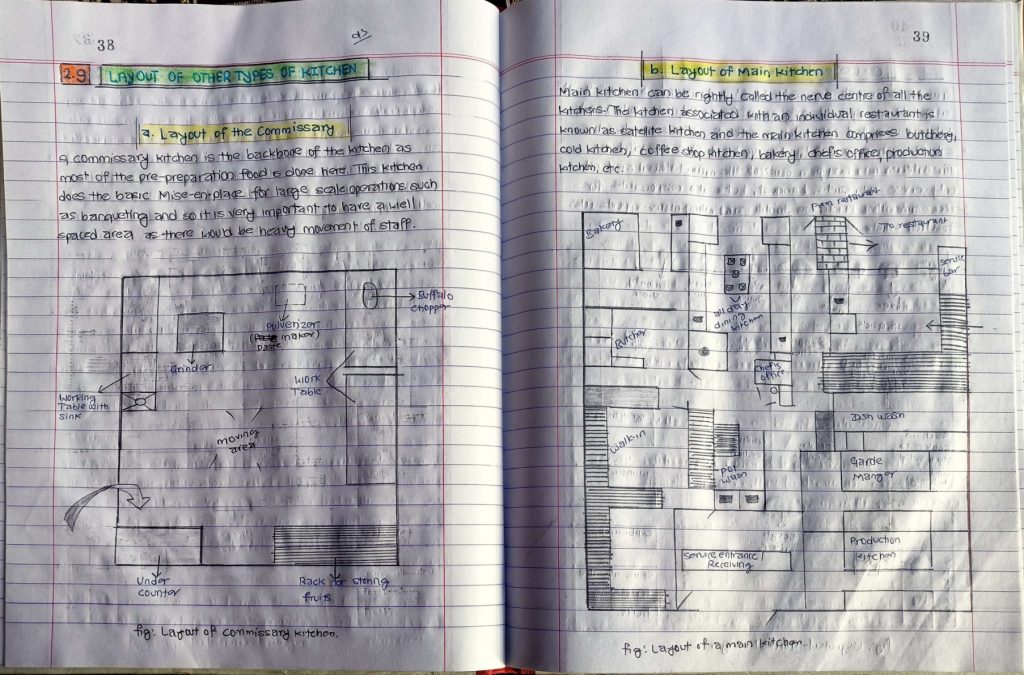 38
2.9 LAYOUT OF OTHER TYPES OF KITCHEN
a. Layout of the Commissary
A commissary kitchen is the backbone of the kitchen as
most of the pre-preparation food is done here. This kitchen
does the basic Mise-en-place for large scale operations such
as banqueting and so it is very important to have a well
spaced area as there would be heavy movement of staff.
Buffalo
chopper
Pulverizer
(paste maker)
Grinder
Work
Table
Working
Table with
sink
moving
area
Under
counter
Rack for storing
fruits
fig: Layout of commissary kitchen.
39
b. Layout of Main Kitchen
Main kitchen can be rightly called the nerve centre of all the
kitchens. The kitchen associated with an individual restaurant is
known as satelite kitchen and the main kitchen comprises butchery,
cold kitchen, coffee shop kitchen, bakery, chef's office, production
kitchen, etc.
From restaurant
To restaurant
Bakery
service
bar
all day
dining
kitchen
Butcher
chef's
office
Dish wash
Walk-in
pot
wash
Garde
Manger
Production
kitchen
service entrance/
Receiving
fig: Layout of a main kitchen.